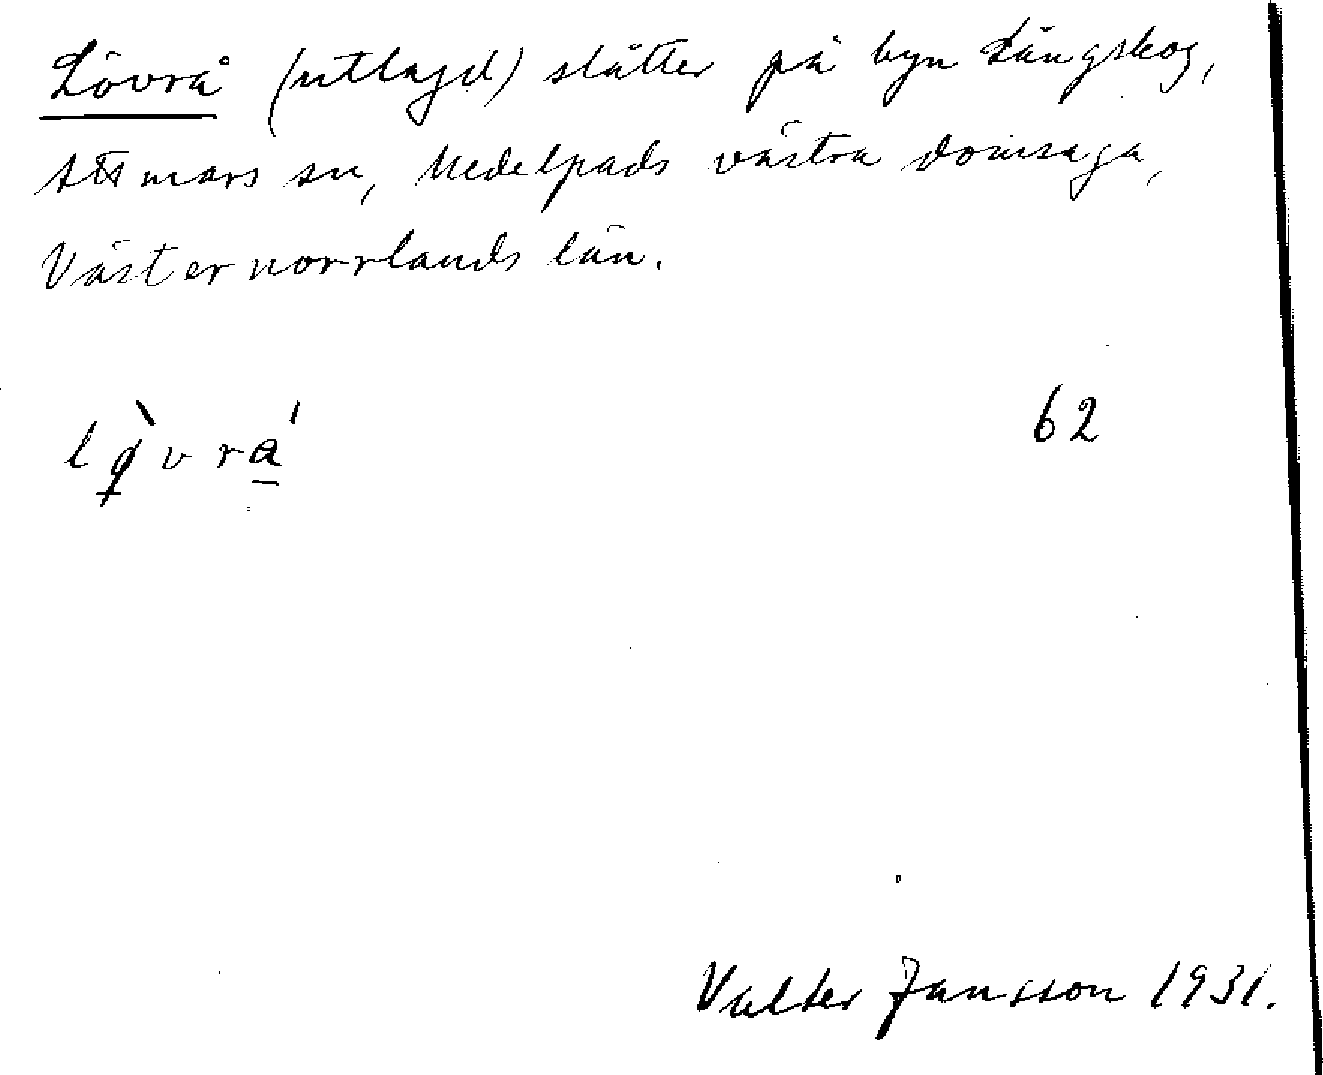 Lövrå (utlagd) slåtter på byn Långskog,
Attmars sn, Medelpads västra domsaga,
Västernorrlands län.
lø̀vra̲ˈ
62
Valter Jansson 1931.